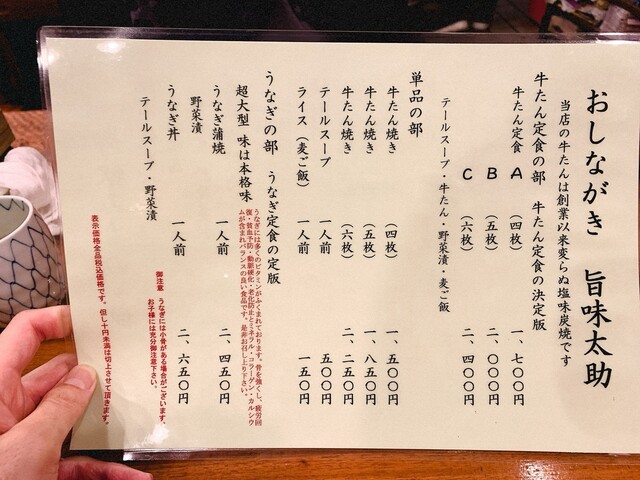 おしながき 旨味太助
当店の牛たんは創業以来変らぬ塩味炭焼です
牛たん定食の部 牛たん定食の決定版
牛たん定食 A (四枚) 一、七〇〇円
B (五枚) 二、〇〇〇円
C (六枚) 二、四〇〇円
テールスープ・牛たん・野菜漬・麦ご飯
単品の部
牛たん焼き (四枚) 一、五〇〇円
牛たん焼き (五枚) 一、八五〇円
牛たん焼き (六枚) 二、二五〇円
テールスープ 一人前 五〇〇円
ライス(麦ご飯) 一人前 一五〇円
うなぎの部 うなぎ定食の定版
うなぎには多くのビタミンがふくまれております。骨を強くし、疲労回
復・貧血予防・動脈硬化・老化防止とミネラル・コラーゲン・カルシウ
ムが含まれバランスの良い食品です。是非お召し上り下さい。
超大型 味は本格味
うなぎ蒲焼 一人前 二、四五〇円
野菜漬
うなぎ丼 一人前 二、六五〇円
テールスープ・野菜漬
御注意 うなぎには小骨がある場合がございます。
お子様には充分御注意下さい。
表示価格全品税込価格です。但し十円未満は切上させて頂きます。